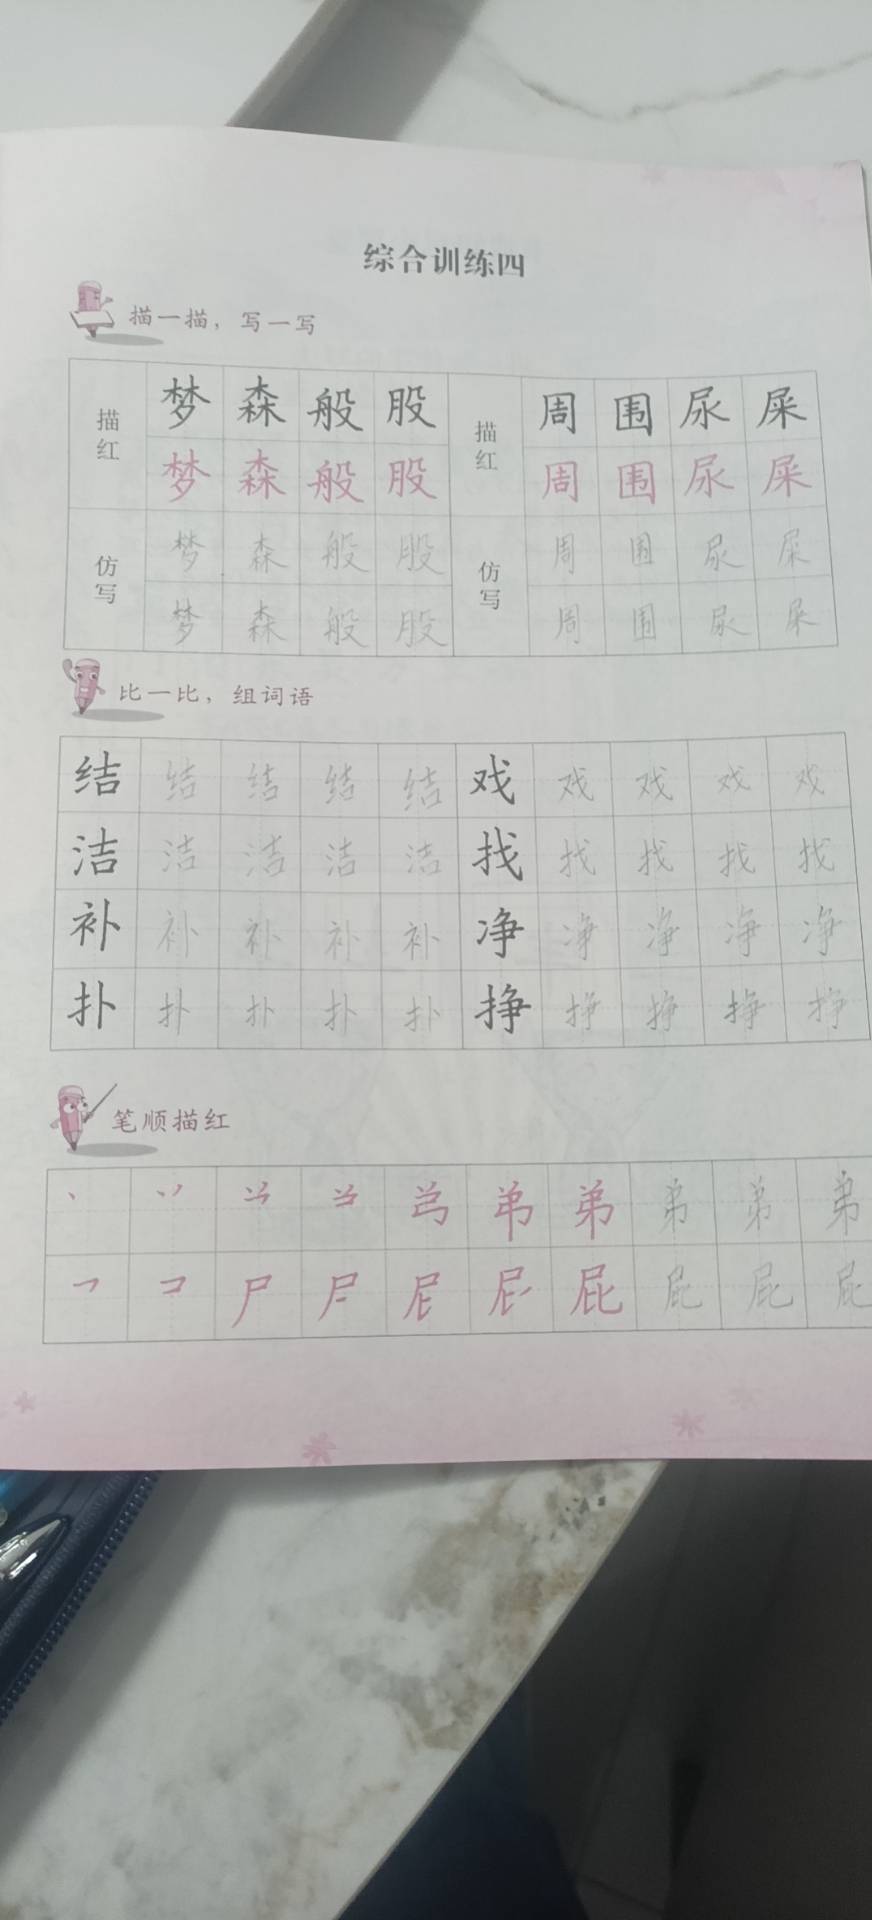 综合训练四
描一描，写一写
描红 梦 森 般 股 描红 周 围 尿 屎
梦 森 般 股 周 围 尿 屎
仿写 梦 森 般 股 仿写 周 围 尿 屎
梦 森 般 股 周 围 尿 屎
比一比，组词语
结 结 结 结 结 戏 戏 戏 戏 戏
洁 洁 洁 洁 洁 找 找 找 找 找
补 补 补 补 补 净 净 净 净 净
扑 扑 扑 扑 扑 挣 挣 挣 挣 挣
笔顺描红
弟 弟 弟 弟
尸 屁 屁 屁 屁